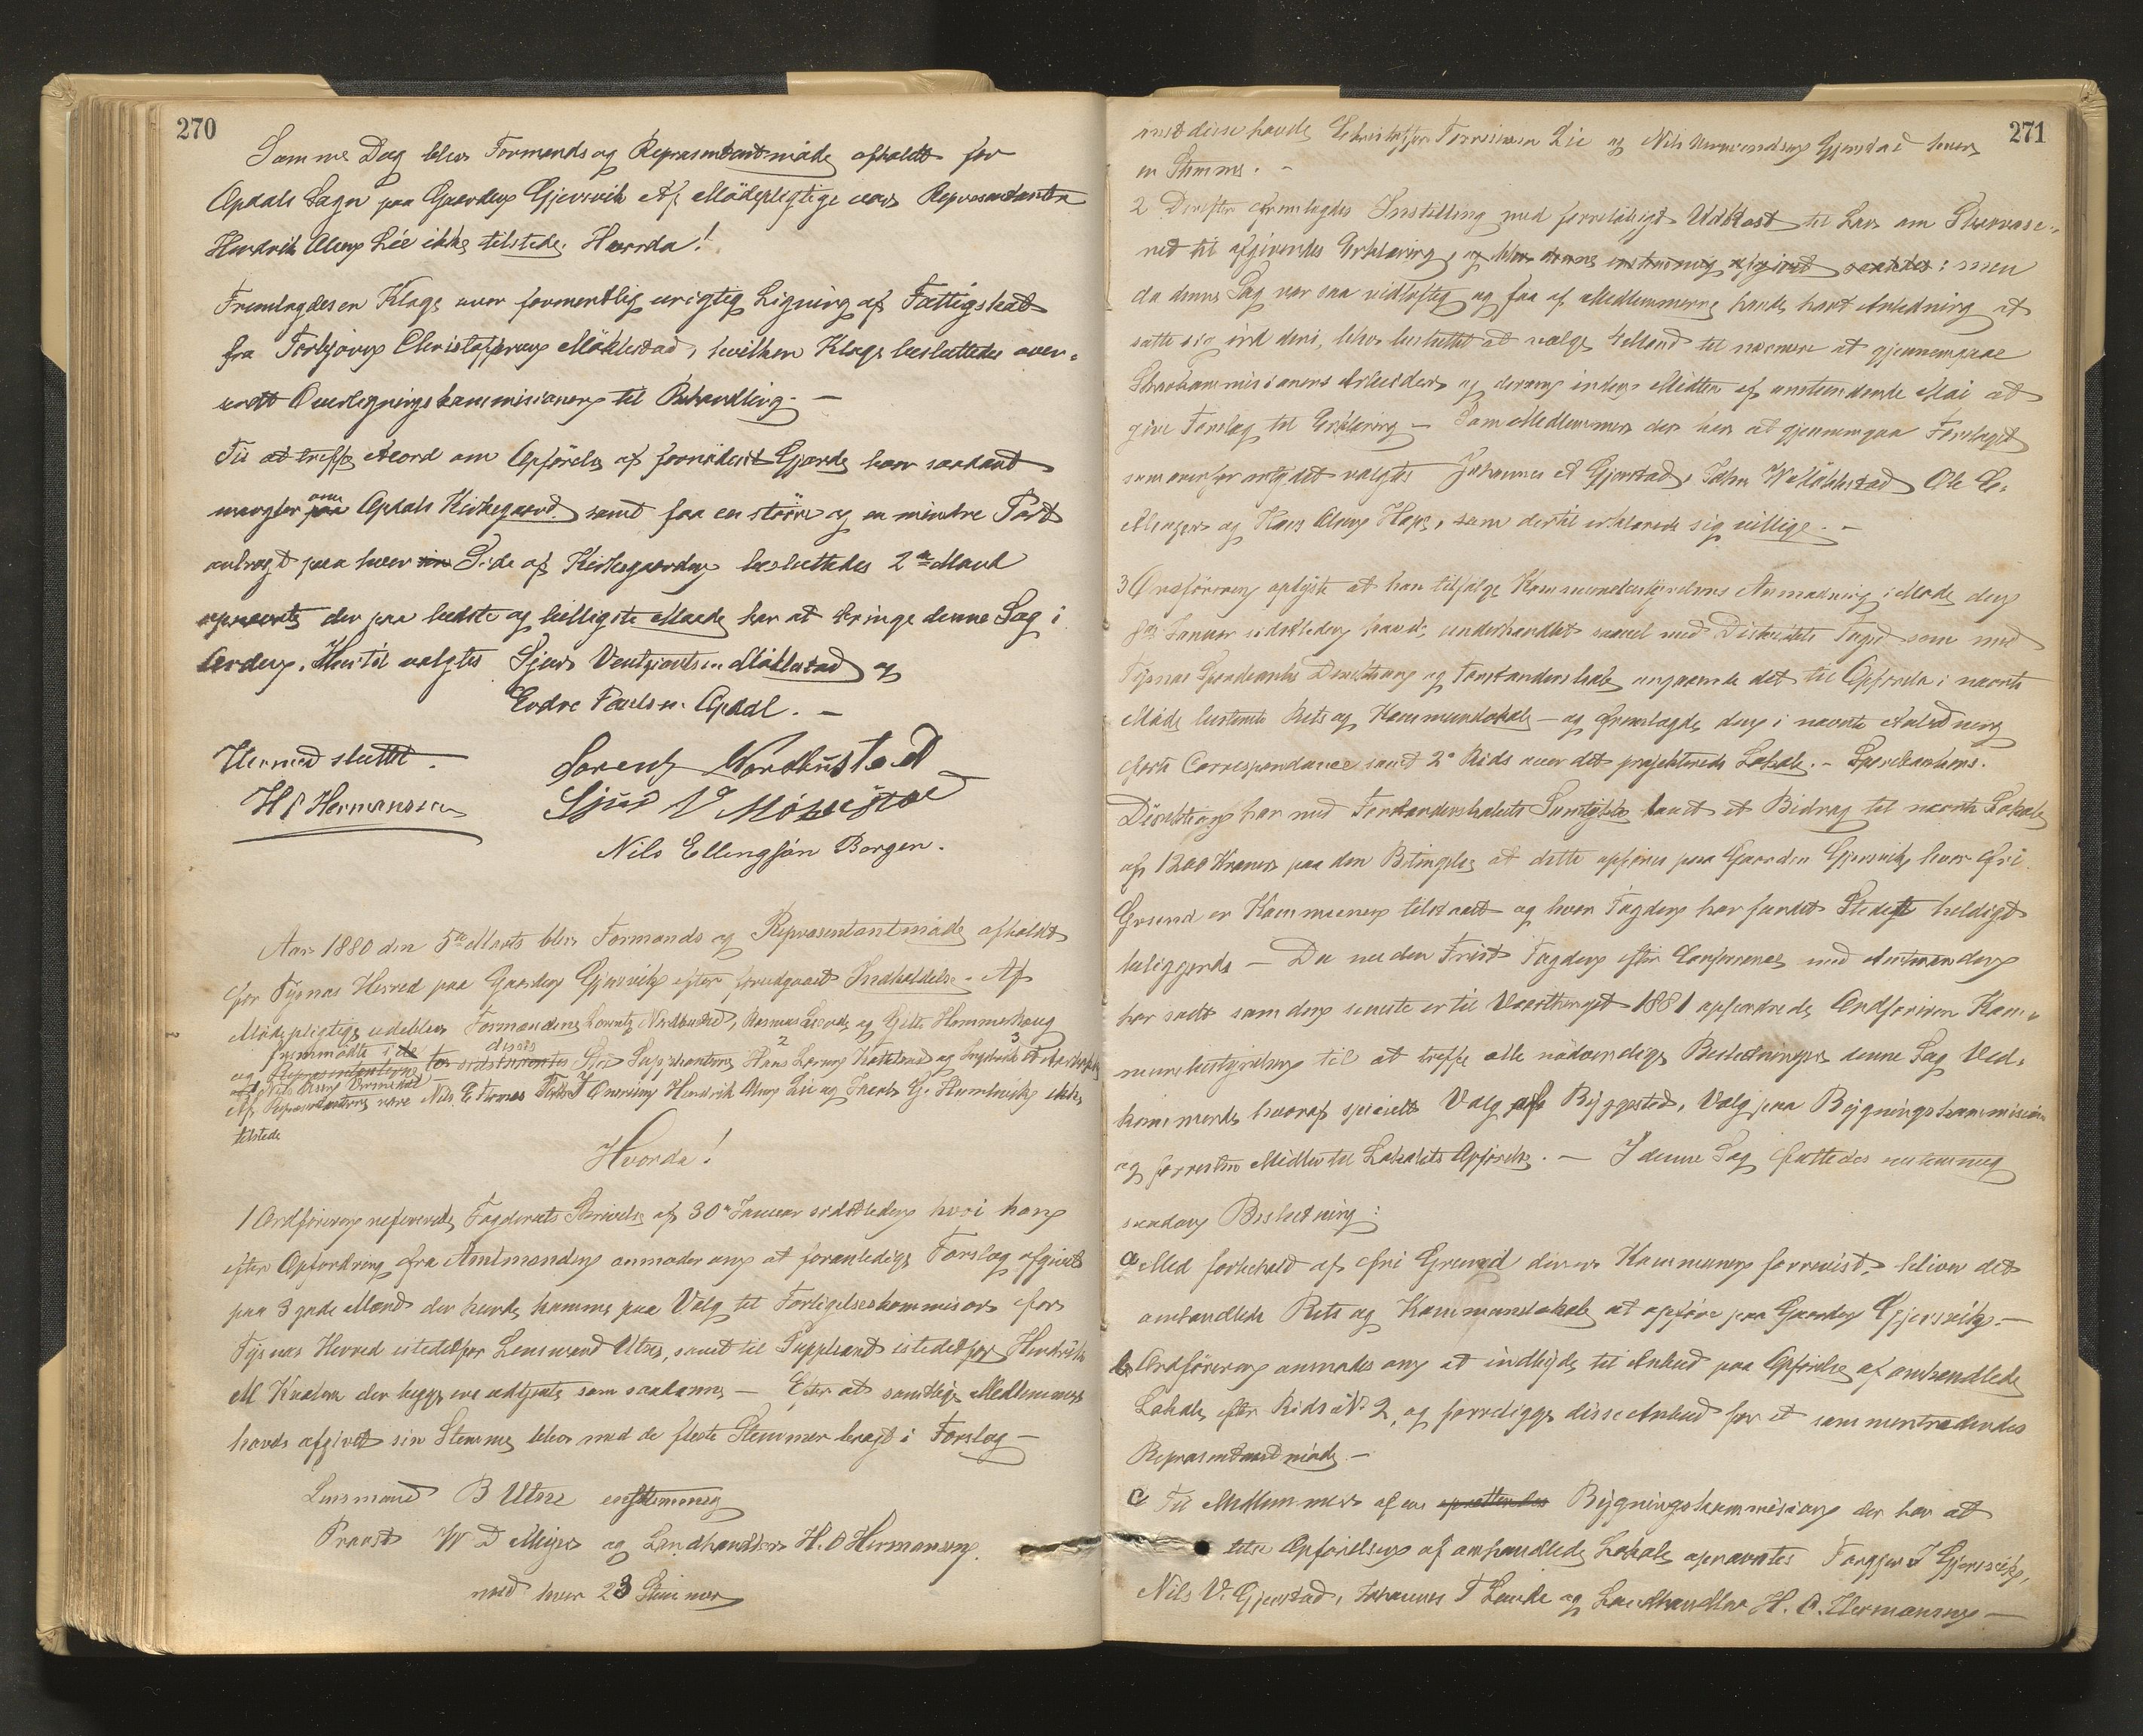 270
Samme Dag blev Formands og Repræsentantmøde afholdt for
Opdals Sogn paa Gaarden Gjersvik Af Mødepligtige var Repræsentanten
Hendrik Olsen Lie ikke tilstede. Hvorda!
Fremlagdes en Klage over formentlig urigtig Ligning af Fattigskat
fra Torbjørn Christofersen Møklestad, hvilken Klage besluttedes over-
sendt Overligningskommisionen til Behandling. —
Til at træffe Acord om Opførelse af fornødent Gjærde hvor saadant
mangler om Opdals Kirkegaard samt faa en større og en mindre Port
anbragt paa hver Side af Kirkegaarden besluttedes 2de Mand
opnævnte der paa bedste og billigste Maade har at bringe denne Sag i
Orden. Hertil valgtes Sjur Ventzentsen Møklestad og
Endre Paulsen Opdal. —
Hermed sluttet. Lorentz Nordhustad
H O Hermansen Sjur V Møklestad
Nils Ellingsøn Borgen.
Aar 1880 den 5te Marts blev Formands og Repræsentantmøde afholdt
for Tysnæs Herred paa Gaarden Gjersvik efter forudgaaet Indkaldelse. Af
Mødepligtige udeblev Formændene Lorentz Nordhustad, Rasmus og Gitle Hommerhaug
fremmødte i disses
Sted Suppleanterne Hans Larsen og
Af Repræsentanterne vare Nils E Hendrik Olsen Lie og Jacob G. ikke
tilstede
Hvorda!
1 Ordføreren refererede Fogderiets Skrivelse af 30te Januar sidstleden hvori han
efter Opfordring fra Amtmanden anmoder om at foranledige Forslag afgivet
paa 3 gode Mænd der kunde komme paa Valg til Forligelseskommisær for
Tysnæs Herred istedetfor Lensmand Utne, samt til Suppleant istedetfor Hendrik
M der begge ere udtjente som saadanne — Efter at samtlige Medlemmer
havde afgivet sin Stemme blev med de fleste Stemmer bragt i Forslag —
Lensmand B Utne enstemmig
Provst W D Meijer og Landhandler H. O Hermansen
med hver 23 Stemmer
271
mest disse havde Christoffer Lie og Nils Gjerstad hver
en Stemme. —
2 Derefter fremlagdes Instilling med foreløbigt Udkast til Lov om Skovvæse-
net til afgivendes Erklæring, og blev denne enstemmig afgivet saaledes: men
da denne Sag var saa vidløftig og faa af Medlemmerne havde havt Anledning at
sætte sig ind deri, blev besluttet at vælge 4 Mand til nærmere at gjennemgaae
Skovkommisionens Arbeider og derom inden Midten af anstundende Mai at
give Forslag til Erklæring — Som Medlemmer der har at gjennemgaa Forslaget
som ovenfor antydet valgtes Johannes A Gjerstad, John W Møklestad Ole C.
og Hans Olsen Hope, som dertil erklærede sig villige. —
3 Ordføreren oplyste at han tilfølge Kommunebestyrelsens Anmodning i Møde den
Januar sidstleden havde underhandlet saavel med Distriktets Foged som med
Tysnæs Sparebanks Direktion og Forstanderskab angaaende det til Opførelse i nævnte
Møde bestemte Rets og Kommunelokale — og fremlagde den i nævnte Anledning
førte Correspondance samt 2de Rids over det projekterede Lokale. — Sparebankens
Direktion har med Forstanderskabets Samtykke lovet et Bidrag til nævnte Lokale
af 1200 Kroner paa den Betingelse at dette opføres paa Gaarden Gjersvik, hvor fri
Grund er Kommunen tilstaaet og hvor Fogden har fundet Stedet heldigt
beliggende — Da nu den Frist Fogden efter Conference med Amtmanden
har sadt som den seneste er til Vaarthinget 1881 opfordrede Ordføreren Kom-
munebestyrelsen til at træffe alle nødvendige Beslutninger denne Sag Ved-
kommende hvoraf specielt Valg af Byggested, Valg paa Bygningskommision
og forresten Midler til Lokalets Opførelse. — I denne Sag fattedes enstemmig
saadan Beslutning:
a Med forbehold af fri Grund dertil Kommunen forrevist, bliver det
omhandlede Rets og Kommunelokale at opføre paa Gaarden Gjersvik. —
b Ordføreren anmodes om at indbyde til Anbud paa Opførelse af omhandlede
Lokale efter Rids No 2, og forreligge disse Anbud for et sammentrædendes
Repræsentantmøde. —
c Til Medlemmer af en Bygningskommision der har at
lede Opførelsen af omhandlede Lokale opnævntes Torger T Gjersvik,
Nils V. Gjerstad, Johannes T Lande og Landhandler H. O. Hermansen —